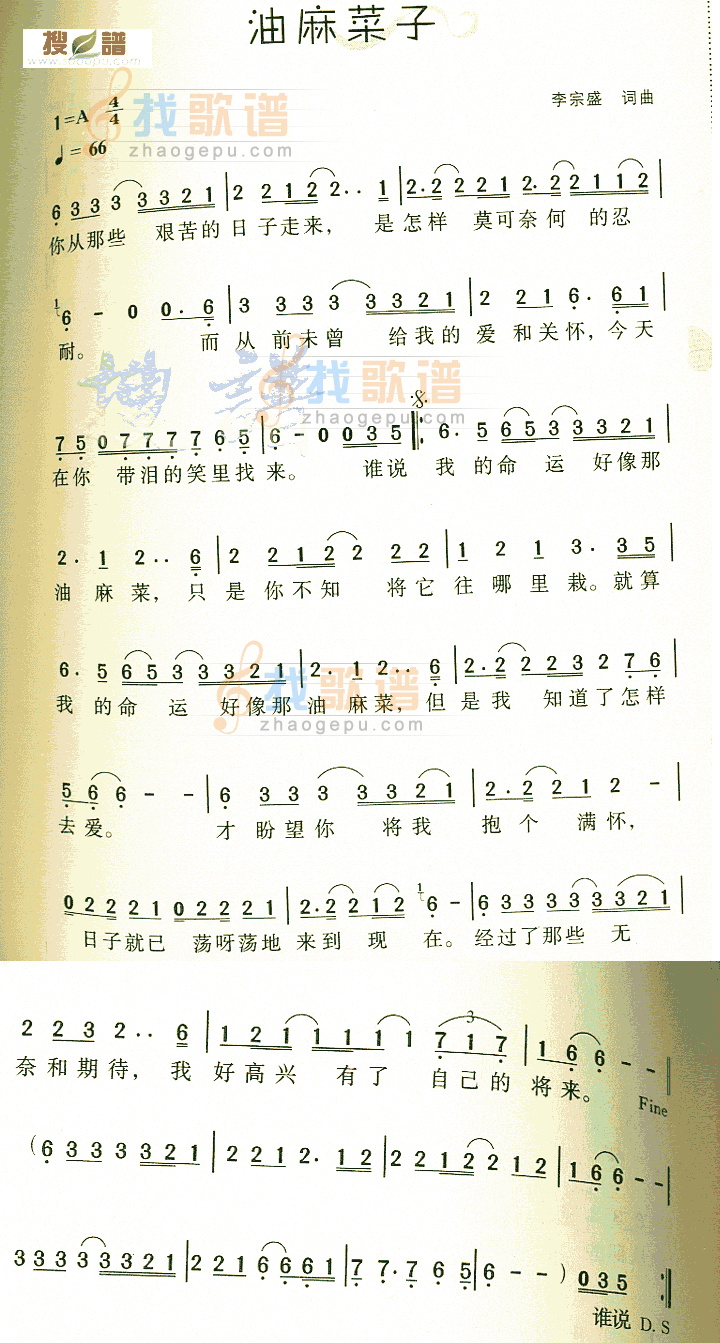 搜 谱
www.sooopu.com
油麻菜子
找歌谱
zhaogepu.com
李宗盛 词曲
1=A 4/4
♩= 66
6 3 3 3 3 3 3 2 1 | 2 2 1 2 2 2·· 1 | 2·2 2 2 2 1 2·2 2 1 1 2 |
你从那些 艰苦的日子走来， 是怎样 莫可奈何 的忍
6 – 0 0·6 | 3 3 3 3 3 3 2 1 | 2 2 1 6·6 1 |
耐。 而从前未曾 给我的爱和关怀，今天
找歌谱
zhaogepu.com
7 5 0 7 7 7 7 6 5 | 6 – 0 0 3 5 :| 6·5 6 5 3 3 3 3 2 1 |
在你 带泪的笑里找来。 谁说 我的命运 好像那
2·1 2·· 6 | 2 2 2 1 2 2 2 2 | 1 2 1 3·3 5 |
油麻菜，只是你不知 将它往哪里栽。就算
6·5 6 5 3 3 3 3 2 1 | 2·1 2·· 6 | 2·2 2 2 3 2 7 6 |
我的命运 好像那油麻菜，但是我 知道了怎样
找歌谱
zhaogepu.com
5 6 6 – – | 6 3 3 3 3 3 2 1 | 2·2 2 2 1 2 – |
去爱。 才盼望你 将我 抱个 满怀，
0 2 2 2 1 0 2 2 2 1 | 2·2 2 2 1 2 6 – | 6 3 3 3 3 3 3 3 2 1 |
日子就已 荡呀荡地来到现 在。经过了那些无
2 2 3 2·· 6 | 1 2 1 1 1 1 1 7 1 7 | 1 6 6 – – ‖
奈和期待，我好高兴 有了 自己的将来。 Fine
(6 3 3 3 3 3 2 1 | 2 2 1 2·1 2 | 2 2 1 2 2 2 1 2 | 1 6 6 – – |
3 3 3 3 3 3 3 2 1 | 2 2 1 6 6 6 1 | 7 7·7 6 5 | 6 – – ) 0 3 5 :|
谁说 D.S